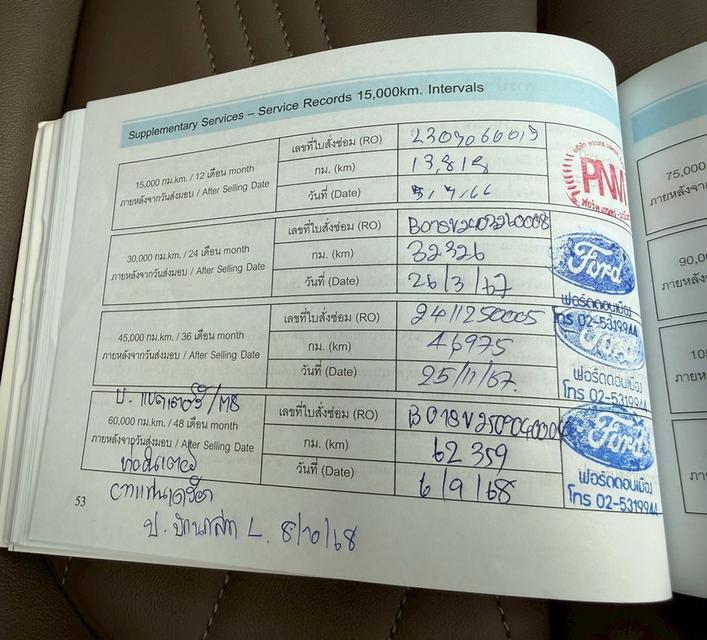 Supplementary Services – Service Records 15,000km. Intervals
15,000 กม.km. / 12 เดือน month
ภายหลังจากวันส่งมอบ / After Selling Date
เลขที่ใบสั่งซ่อม (RO)
กม. (km)
13,818
วันที่ (Date)
5/7/66
PNM
30,000 กม.km. / 24 เดือน month
ภายหลังจากวันส่งมอบ / After Selling Date
เลขที่ใบสั่งซ่อม (RO)
กม. (km)
32326
วันที่ (Date)
26/3/67
Ford
ฟอร์ดดอนเมือง
โทร 02-5319944
45,000 กม.km. / 36 เดือน month
ภายหลังจากวันส่งมอบ / After Selling Date
เลขที่ใบสั่งซ่อม (RO)
2411250005
กม. (km)
46975
วันที่ (Date)
25/11/67.
ฟอร์ดดอนเมือง
โทร 02-5319944
60,000 กม.km. / 48 เดือน month
ภายหลังจากวันส่งมอบ / After Selling Date
เลขที่ใบสั่งซ่อม (RO)
กม. (km)
62359
วันที่ (Date)
6/9/68
Ford
ฟอร์ดดอนเมือง
โทร 02-5319944
ป. แบตเตอรี่ /
L. 8/10/68
53
75,000
ภายหลัง
90,0
ภายหลัง